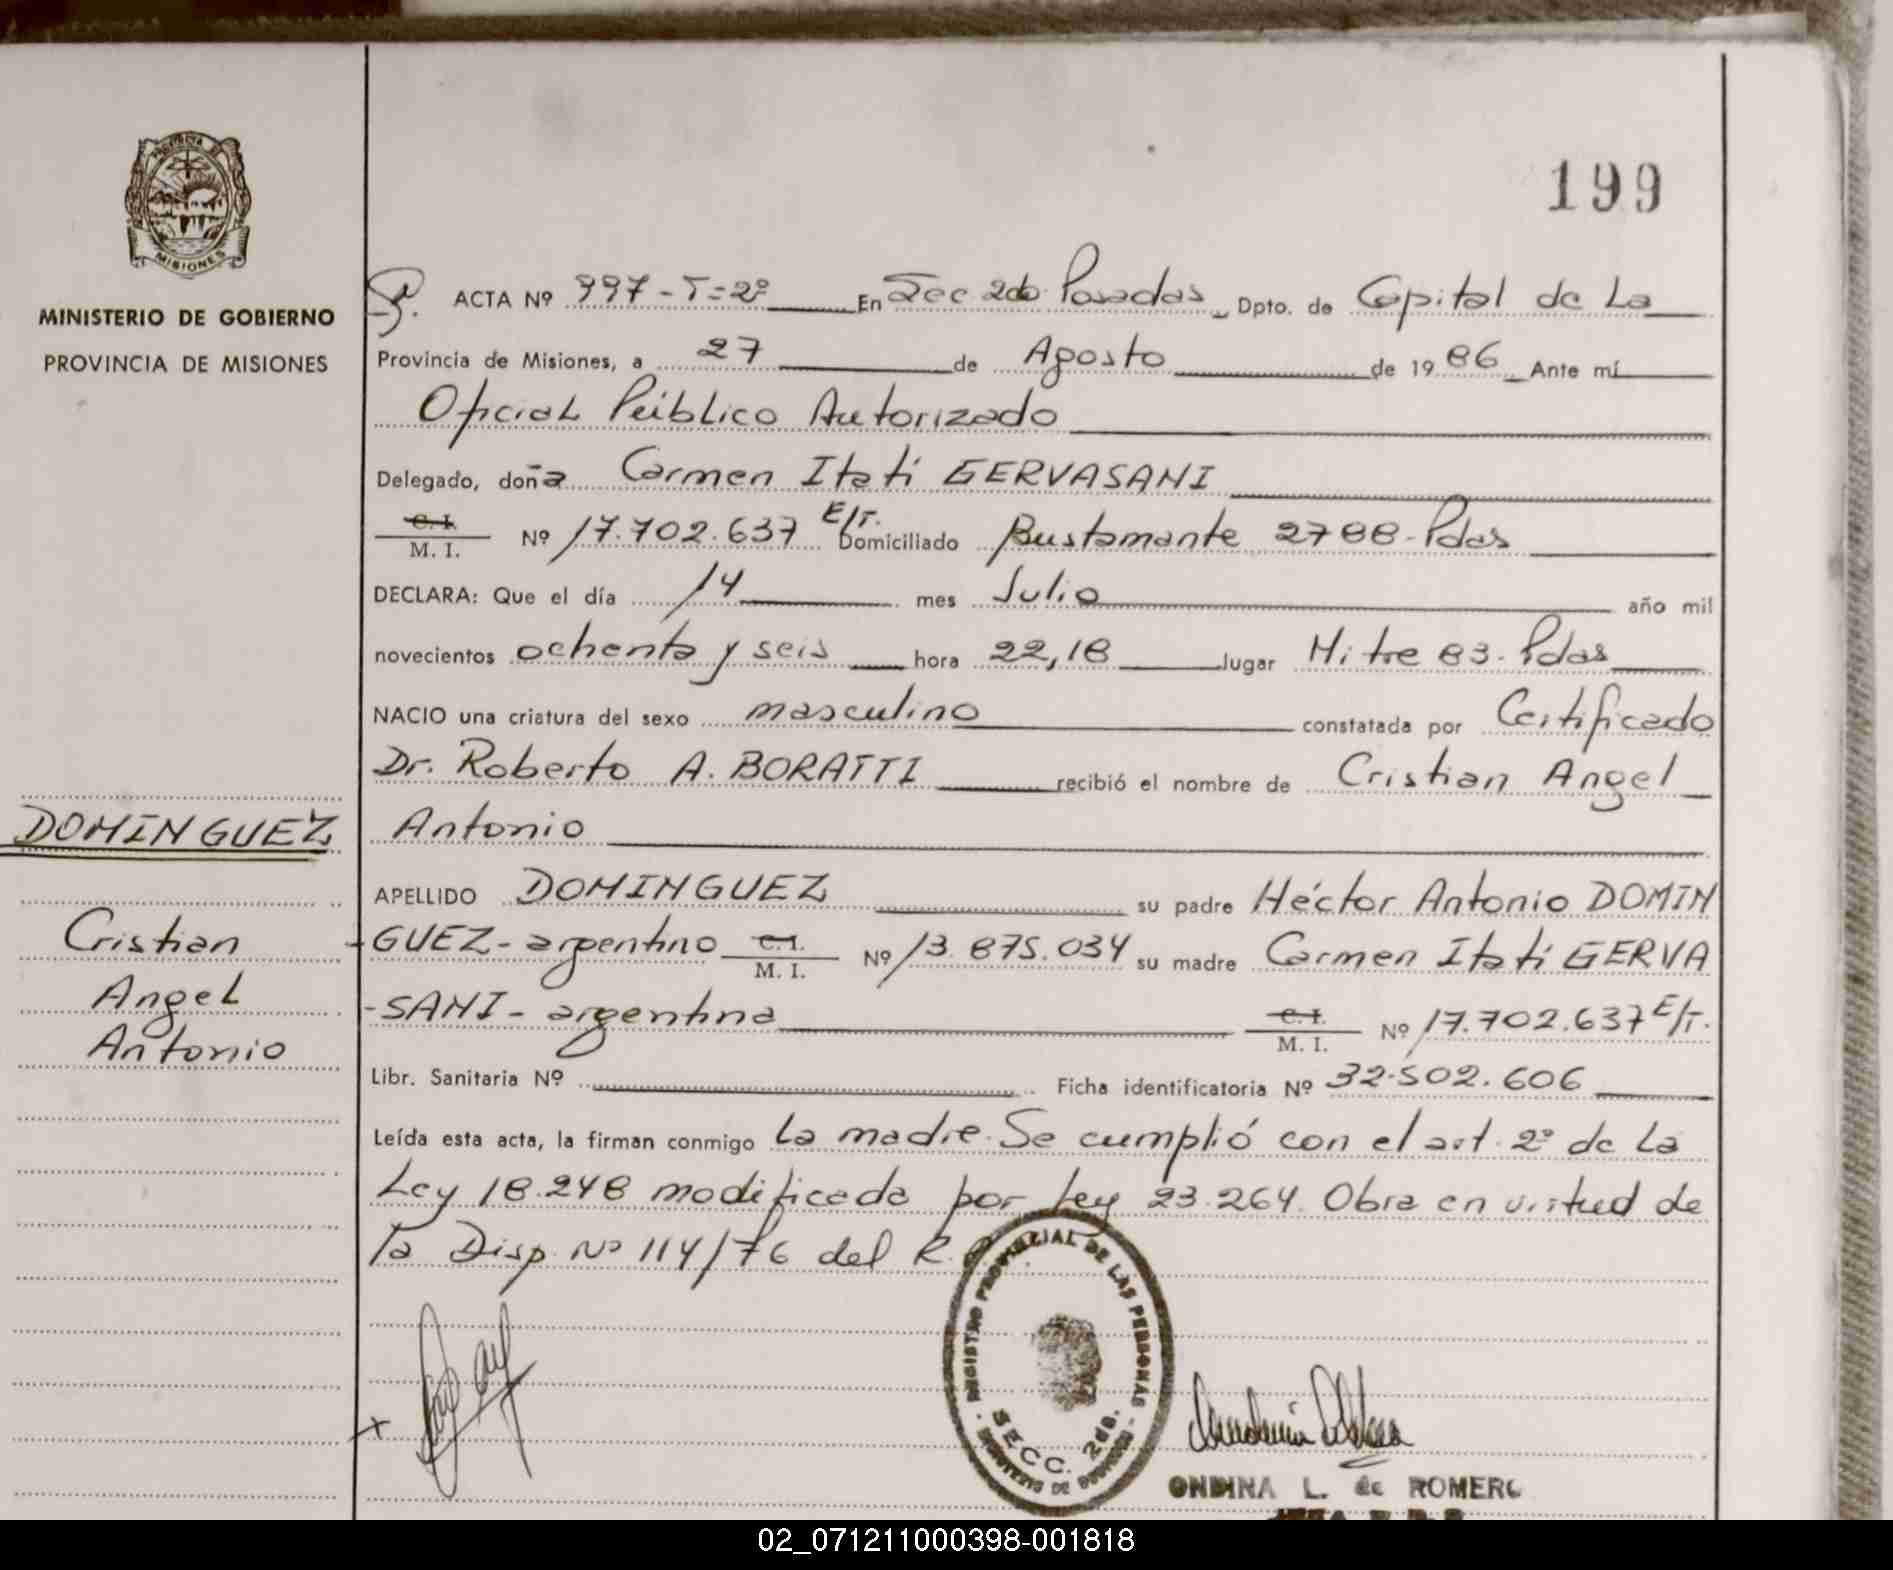 199
PROVINCIA DE
MISIONES
MINISTERIO DE GOBIERNO
PROVINCIA DE MISIONES
ACTA Nº 997-T=2º En Sec 2da Posadas Dpto. de Capital de La
Provincia de Misiones, a 27 de Agosto de 1986 Ante mí
Oficial Público Autorizado
Delegado, doña Carmen Itatí GERVASANI
C. I. M. I. Nº 17.702.637 E/T. Domiciliado Bustamante 2788-Pdas
DECLARA: Que el día 14 mes Julio año mil
novecientos ochenta y seis hora 22,18 lugar Mitre 83-Pdas
NACIO una criatura del sexo masculino constatada por Certificado
Dr. Roberto A. BORATTI recibió el nombre de Cristian Angel
Antonio
DOMINGUEZ
Cristian
Angel
Antonio
APELLIDO DOMINGUEZ su padre Héctor Antonio DOMIN
-GUEZ-argentino C. I. M. I. Nº 13.875.034 su madre Carmen Itatí GERVA
-SANI-argentina C. I. M. I. Nº 17.702.637 E/T.
Libr. Sanitaria Nº Ficha identificatoria Nº 32.502.606
Leída esta acta, la firman conmigo la madre. Se cumplió con el art. 2º de la
Ley 18.248 modificada por Ley 23.264. Obra en virtud de
la Disp. Nº 114/76 del R.
REGISTRO PROVINCIAL DE LAS PERSONAS
SECC. 2da.
MINISTERIO DE GOBIERNO
ONDINA L. de ROMERO
02_071211000398-001818